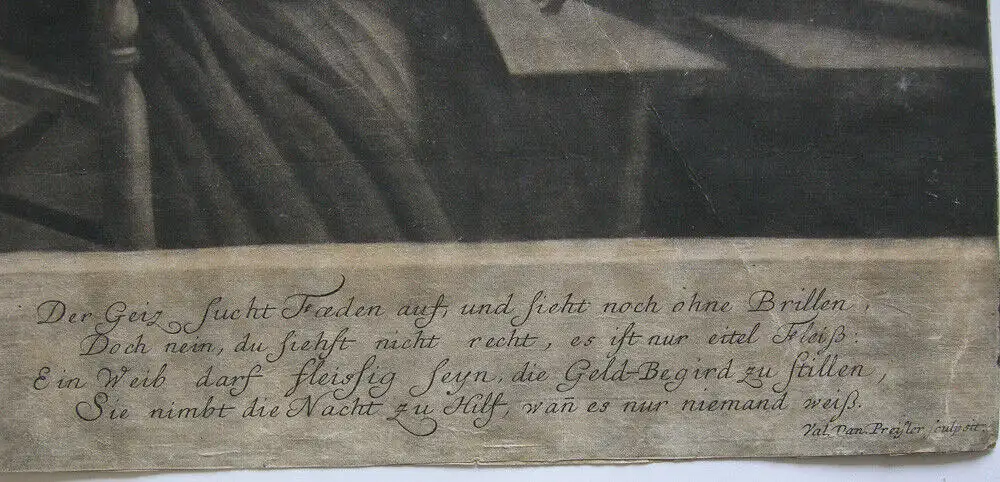 Der Geiz ſucht Fæden auf, und ſieht noch ohne Brillen,
Doch nein, du ſiehſt nicht recht, es iſt nur eitel Fleiß.
Ein Weib darf fleiſſig ſeyn, die Geld-Begird zu ſtillen,
Sie nimbt die Nacht zu Hilf, wañ es nur niemand weiß.
Val. Dan. Preiſler ſculpsit.